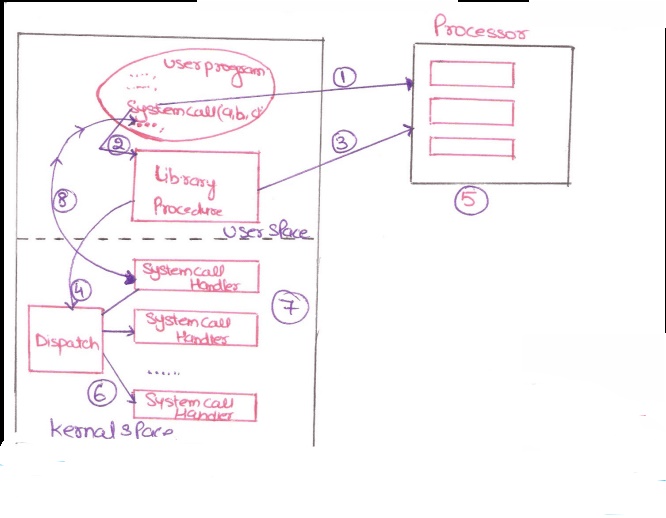 Processor
user program
.....
....
System call (a, b, c)
....;
①
②
③
Library
Procedure
⑤
⑧
user space
④
System call
Handler
⑦
System call
Handler
Dispatch
......
⑥
System call
Handler
kernal space